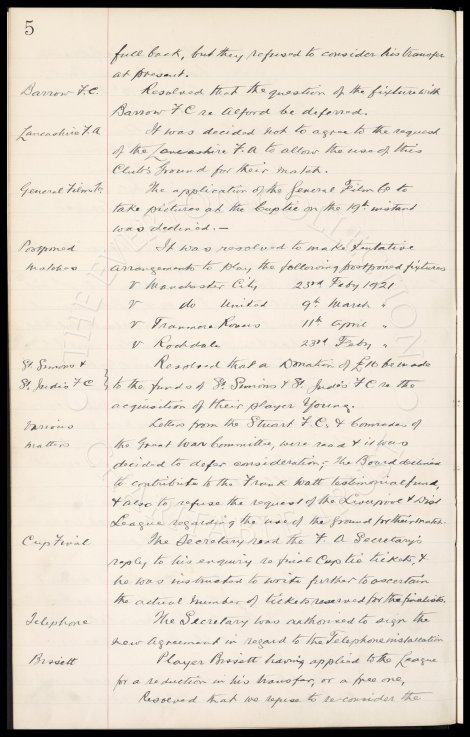 5
full back, but they refused to consider his transfer
at present.
Barrow F.C. Resolved that the question of the fixture with
Barrow F C re Alford be deferred.
Lancashire F.A It was decided not to agree to the request
of the Lancashire F.A to allow the use of this
Club's Ground for their match.
General Film Co The application of the General Film Co to
take pictures at the Cuptie on the 19th instant
was declined. —
Postponed It was resolved to make tentative
matches arrangements to play the following postponed fixtures
V Manchester City 23rd Feby 1921
V do United 9th March "
V Tranmere Rovers 11th April "
V Rochdale 23rd Feby "
St Simons & Resolved that a Donation of £10 be made
St Judes F C to the funds of St Simons & St Judes F C re the
acquisition of their player Young.
Various Letters from the Stuart F.C. & Comrades of
matters the Great War Committee, were read & it was
decided to defer consideration; The Board declined
to contribute to the Frank Watt testimonial fund,
& also to refuse the request of the Liverpool & Dist
League regarding the use of the Ground for their match.
Cup Final The Secretary read the F. A Secretary's
reply to his enquiry re final Cup tie tickets, &
he was instructed to write further to ascertain
the actual number of tickets reserved for the finalists.
Telephone The Secretary was authorised to sign the
new agreement in regard to the Telephone installation
Bissett Player Bissett having applied to the League
for a reduction in his transfer, or a free one,
Resolved that we refuse to re-consider the